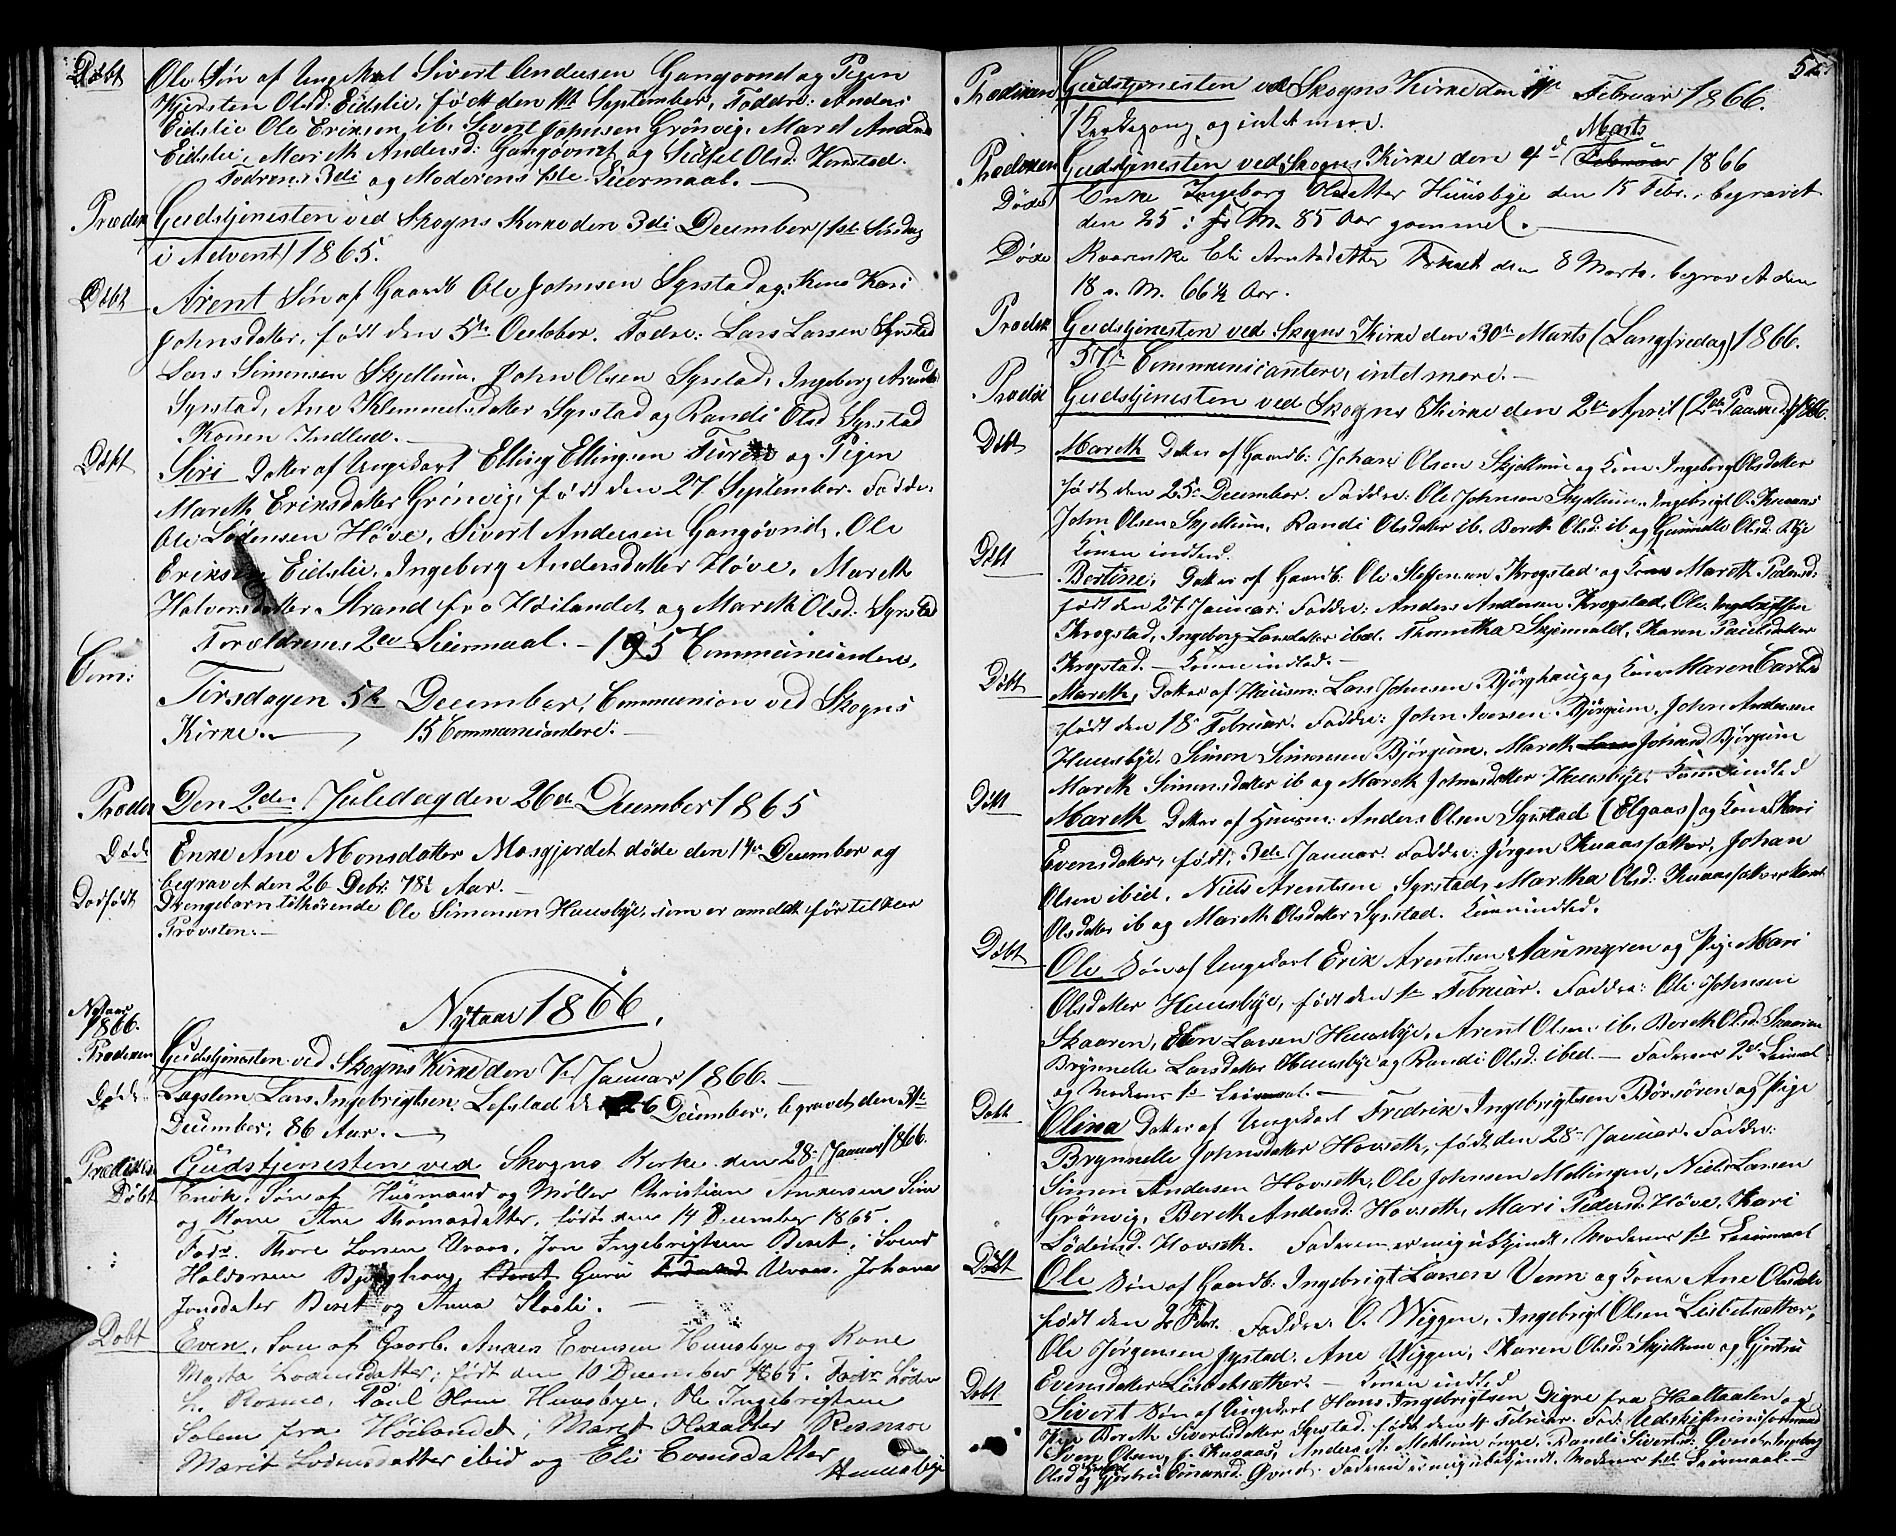 Døbt Ole Søn af Ungekarl Sivert Andersen Gangøvnd og Pigen
Kjersten Olsd: Eidslie, født den September, Faddre: Anders
Eidslie Ole Eriksen ib. Sivert Johnsen Grönvig. Maret Anders
Eidslie, Mareth Andersd: Gangøvnd og Sidsel Olsd:
Fadrens 3di og Moderens 1ste Leiermaal.
Præden Gudstjenesten ved Skogns Kirke den 3di December (1ste Søndag
i Advent) 1865.
Døbt Arent Søn af Gaardb Ole Johnsen Syrstad og Kone Kari
Johnsdatter, født den 5te October. Fadre: Lars Larsen Syrstad
Lars Simonsen Skjellum. John Olsen Syrstad, Ingeborg Arents
Syrstad, Ane Klemmetsdatter Syrstad og Randi Olsd Syrstad
Konen Indled.
Døbt Siri Datter af Ungekarl Elling Ellingsen og Pigen
Mareth Eriksdatter Grönvig, født den 27 September. Faddre:
Ole Lødensen Høve, Sivert Andersen Gangøvnd, Ole
Eriksen Eidslie, Ingeborg Andersdatter Høve, Mareth
Halvorsdatter Strand fra Høilandet og Mareth Olsd: Syrstad
Forældrenes 2en Leiermaal. - 195 Communicantere,
Com: Tirsdagen 5te December, Communion ved Skogns
Kirke. 15 Communicantere.
Præden Den 2den Juledag den 26de December 1865
Døde Enke Ane Monsdatter Mosgjerdet døde den 14de December og
begravet den 26 Debr. 78½ Aar.
Dødfødt Drengebarn tilhørende Ole Simonsen Huusbye, som er anmeldt før til Herr
Provsten.
Nytaar 1866. Nytaar 1866.
Prædeken Gudstjenesten ved Skogns Kirke den 7de Januar 1866.
Døde Lægslem Lars Ingebrigtsen Lefstad 26 December, begravet den
December, 86 Aar.
Prædiken Gudstjenesten ved Skogns Kirke den 28de Januar 1866.
Døbt Enok, Søn af Husmand og Møller Christian Andersens
og Kone Ane Thomasdatter, født den 14 December 1865.
Fadr. Thore Larsen Uvaas, Jon Ingebrigtsen Beret, Svend
Haldorsen Bjørghaug, Guru Uvaas. Johana
Jonsdatter Beret og Anna
Døbt Even, Søn af Gaarb. Anders Evensen Huusbye og Kone
Marta Lodensdatter, født den 10 December 1865. Fadr Löden
L. Rosmo, Paul Huusbye, Ole Ingebrigtsen
Solem fra Høilandet, Maret Olsdatter Rosmoe
Marit Lodensdatter ibid og Eli Evensdatter
Huusbye
52.
Prædiken Gudstjenesten ved Skogns Kirke den Februar 1866.
1 Kirkegang og intet mere.
Marts
Prædeken Gudstjenesten ved Skogns Kirke den 4de Februar 1866
Døde Enke Ingeborg Olsdatter Huusbye den 15 Febr., begravet
den 25 s. M. 85 Aar gammel.
Døde Kaarenke Eli Arntsdatter den 8 Marts, begravet den
18 s. M. 66½ Aar.
Prædik Gudstjenesten ved Skogns Kirke den 30te Marts (Langfredag) 1866.
57 Communicantere, intet mere.
Prædik Gudstjenesten ved Skogns Kirke den 2den April (2den Paaskedag) 1866.
Døbt Mareth Datter af Gaardb: Johan Olsen Skjellum og Kone Ingeborg Olsdatter
født den 25de December. Faddre: Ole Johnsen Skjellum, Ingebrigt O. Knaaes
John Olsen Skjellum, Randi Olsdatter ib. Bereth Olsd: ib og Gunnille Olsd: Bye
Konen indled.
Døbt Bertine, Datter af Gaardb: Ole Steffensen Krogstad og Kone Mareth Pedersd:
født den 27 Januar. Faddre: Anders Andersen Krogstad, Ole Ingebrigtsen
Krogstad, Ingeborg Larsdatter ibid. Thomitha Skjervold, Karen Paulsdatter
Krogstad. - Konen indled. -
Døbt Mareth, Datter af Huusm: Lars Johnsen Bjørghaug og Kone Maren
født den 18de Februar. Faddre: John Iversen Bjørgum, John Andersen
Huusbye, Simon Simonsen Bjørgum, Mareth Johnsd Bjørgum
Mareth Simonsdatter ib og Mareth Johnsdatter Huusbye. Konen indled
Døbt Mareth Datter af Huusm: Anders Olsen Syrstad (Elgaas) og Kone Kari
Evensdatter, født 3de Januar. Faddre: Jörgen Knaassætter, Johan
Olsen ibid, Niels Arentsen Syrstad, Martha Olsd: Knaassætter,
Olsdatter ib og Mareth Olsdatter Syrstad. Konen indled.
Døbt Ole Søn af Ungekarl Erik Arentsen Aunmyren og Pige Mari
Olsdatter Huusbye, født den 1te Februar. Faddre: Ole Johnsen
Skaaren, Larsen Huusbye, Arent Olsen ib. Bereth Olsd: Skaaren
Brynnelle Larsdatter Huusbye og Randi Olsd: ibid. - Faderens 2det Leiermal
og Moderens 1te Leiermaal. -
Døbt Olina Datter af Ungekarl Fredrik Ingebrigtsen Börsören og Pige
Brynnelle Johnsdatter Hovseth, født den 28de Januar. Faddre:
Simon Andersen Hovseth, Ole Johnsen Mellingen, Niels Larsen
Grönvig, Bereth Andersd: Hovseth, Mari Pedersd: Høve, Kari
Lödensd. Hovseth. Faderen er mig ubkjendt, Moderens 1te Leiermaal
Døbt Ole Søn af Gaardb: Ingebrigt Larsen Venn og Kone Ane Olsdatter
født den 2 Febr. Faddre: O. Wiggen, Ingebrigt Olsen Lisbetsætter,
Ole Jörgensen Systad. Ane Wiggen, Karen Olsd: Skjellum og Gjertru
Evensdatter Lisbetsætter. - Konen indled
Døbt Sivert Søn af Ungekarl Hans Ingebrigtsen Digre fra Haaltaalen og
Pige Bereth Sivertsdatter Syrstad, født den 4 Februar. Fad: Udskiftningsformand
Even Olsen, Knaaes, Anders A. Mehlum Randi Sivertsd: Qvendn Ingeborg
Olsd og Gjertru Einarsd: Qvend. Faderen er mig ubekjendt. Moderens 1ste Leiermaal.